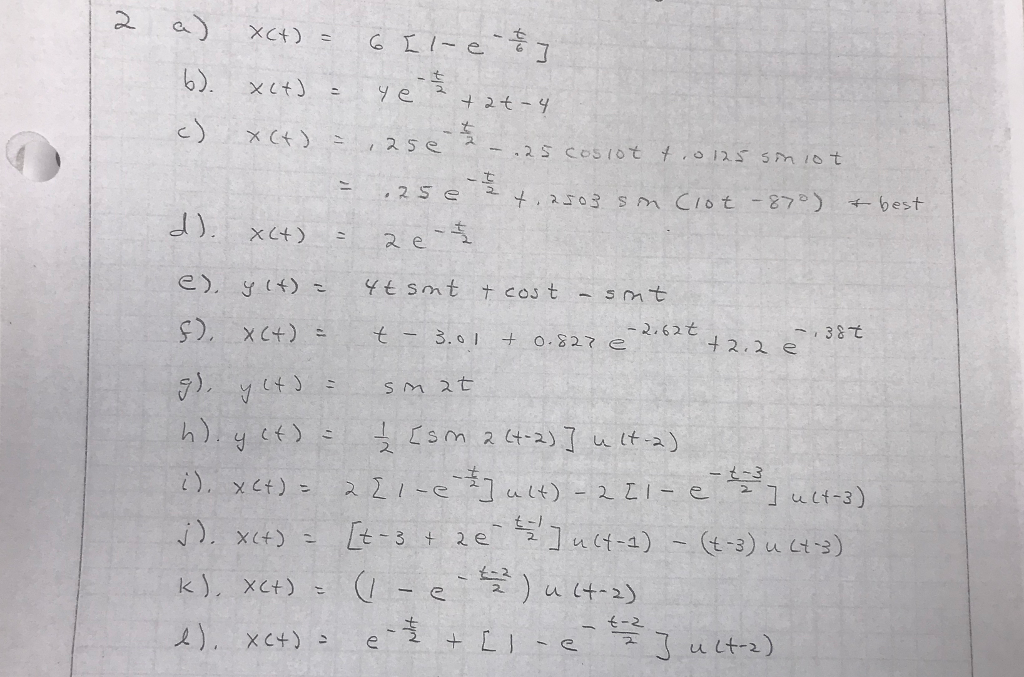 2 a) x(t) = 6 [1-e^{-t/6}]
b). x(t) = 4e^{-t/2} + 2t-4
c) x(t) = .25e^{-t/2} - .25 cos10t + .0125 sin10t
= .25e^{-t/2} + .2503 sin (10t -87°) ← best
d). x(t) = 2e^{-t/2}
e). y(t) = 4t sint + cost - sint
f). x(t) = t - 3.01 + 0.827 e^{-2.62t} + 2.2 e^{-.38t}
g). y(t) = sin 2t
h). y(t) = 1/2 [sin 2(t-2)] u(t-2)
i). x(t) = 2[1-e^{-t/2}]u(t) - 2[1-e^{-(t-3)/2}]u(t-3)
j). x(t) = [t-3 + 2e^{-(t-1)/2}]u(t-1) - (t-3)u(t-3)
k). x(t) = (1 - e^{-(t-2)/2}) u(t-2)
l). x(t) = e^{-t/2} + [1 - e^{-(t-2)/2}] u(t-2)